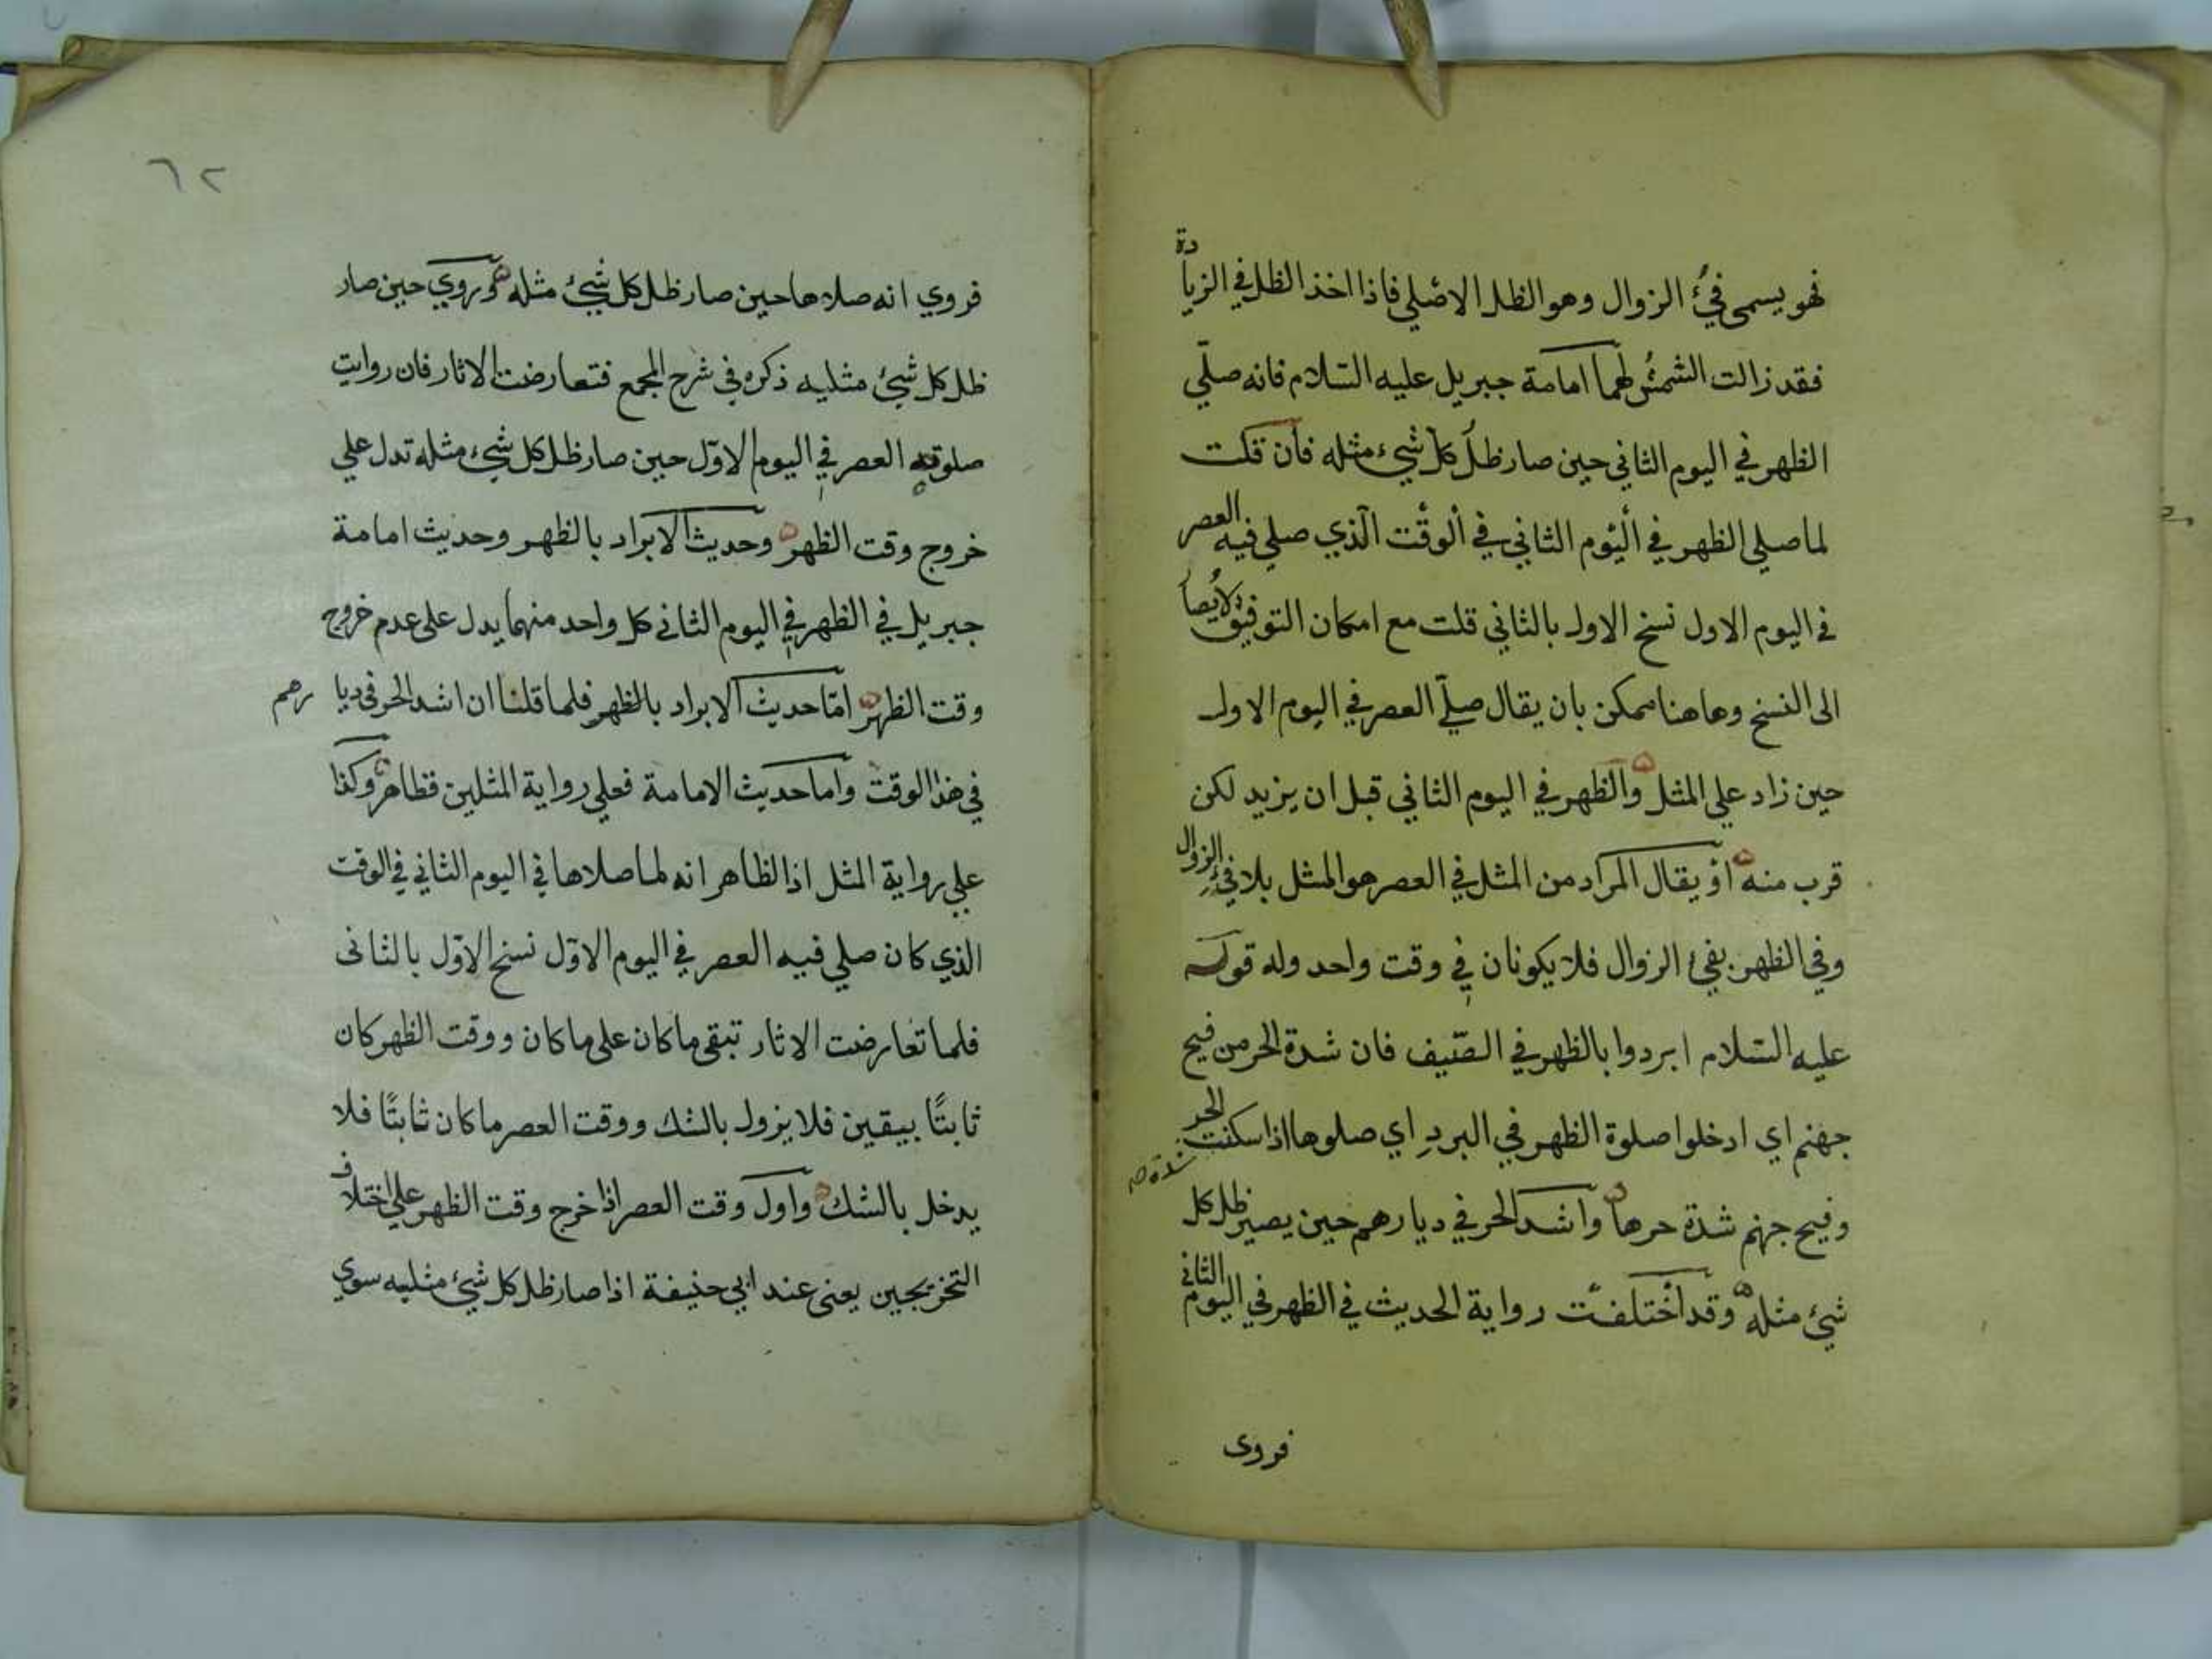 فهو يسمى فيئ الزوال وهو الظل الاصلي فاذا اخذ الظل في الزيادة
فقد زالت الشمس لهما امامة جبريل عليه السلام فانه صلّي
الظهر في اليوم الثاني حين صار ظل كل شيء مثله فان قلت
لما صلي الظهر في اليوم الثاني في الوقت الذي صلي فيه العصر
في اليوم الاول نسخ الاول بالثاني قلت مع امكان التوفيق لايصار
الى النسخ وهاهنا ممكن بان يقال صلّي العصر في اليوم الاول
حين زاد علي المثل والظهر في اليوم الثاني قبل ان يزيد لكن
قرب منه او يقال المراد من المثل في العصر هو المثل بلا فيئ الزوال
وفي الظهر بفيئ الزوال فلا يكونان في وقت واحد وله قوله
عليه السلام ابردوا بالظهر في الصيف فان شدة الحر من فيح
جهنم اي ادخلوا صلوة الظهر في البرد اي صلوها اذا سكنت الحر
شدة صح
وفيح جهنم شدة حرها واشد الحر في ديارهم حين يصير ظل كل
شيئ مثله وقد اختلفت رواية الحديث في الظهر في اليوم الثاني
فروى
٦٢
فروي انه صلاها حين صار ظل كل شيئ مثله وروي حين صار
ظل كل شيئ مثليه ذكره في شرح المجمع فتعارضت الاثار فان روايت
صلوته العصر في اليوم الاوّل حين صار ظل كل شيء مثله تدل علي
خروج وقت الظهر وحديث الابراد بالظهر وحديث امامة
جبريل في الظهر في اليوم الثاني كل واحد منهما يدل على عدم خروج
وقت الظهر امّا حديث الابراد بالظهر فلما قلنا ان اشد الحر في ديا رهم
في هذا الوقت واما حديث الامامة فعلي رواية المثلين فظاهر وكذا
علي رواية المثل اذ الظاهر انه لما صلاها في اليوم الثاني في الوقت
الذي كان صلي فيه العصر في اليوم الاوّل نسخ الاوّل بالثانى
فلما تعارضت الاثار تبقي ما كان على ما كان ووقت الظهر كان
ثابتًا بيقين فلا يزول بالشك ووقت العصر ما كان ثابتًا فلا
يدخل بالشك واول وقت العصر اذا خرج وقت الظهر علي اختلاف
التخريجين يعنى عند ابي حنيفة اذا صار ظل كل شيئ مثليه سوي